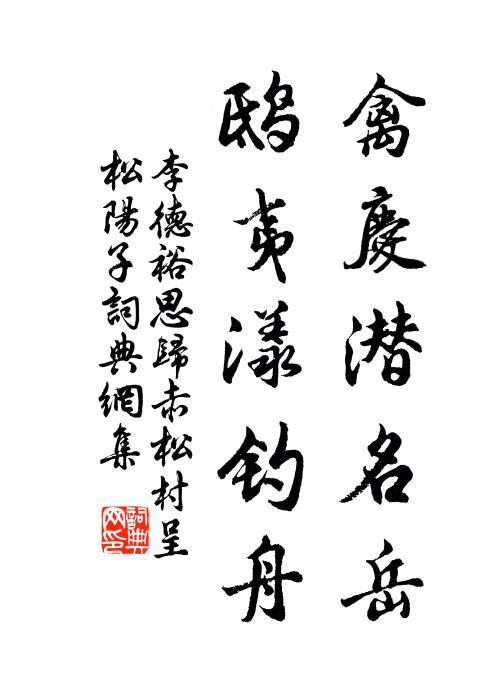 禽慶潜名岳
鴟夷漾钓舟
李德裕思歸赤松村呈
松陽子詞典網集
詞典网印